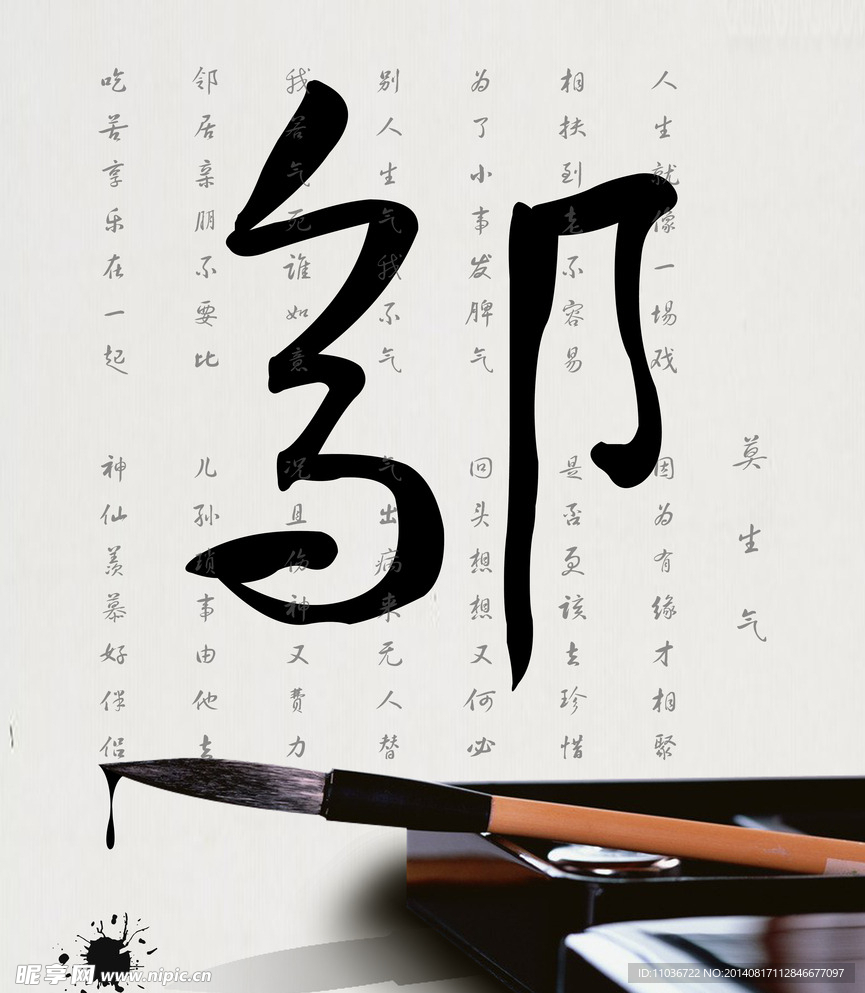 莫生气
人生就像一場戏 因为有缘才相聚
相扶到老不容易 是否更该去珍惜
为了小事发脾气 回头想想又何必
别人生气我不气 气出病来无人替
我若气死谁如意 况且伤神又费力
邻居亲朋不要比 儿孙琐事由他去
吃苦享乐在一起 神仙羡慕好伴侣
昵享网 www.nipic.cn
ID:11036722 NO:20140817112846677097